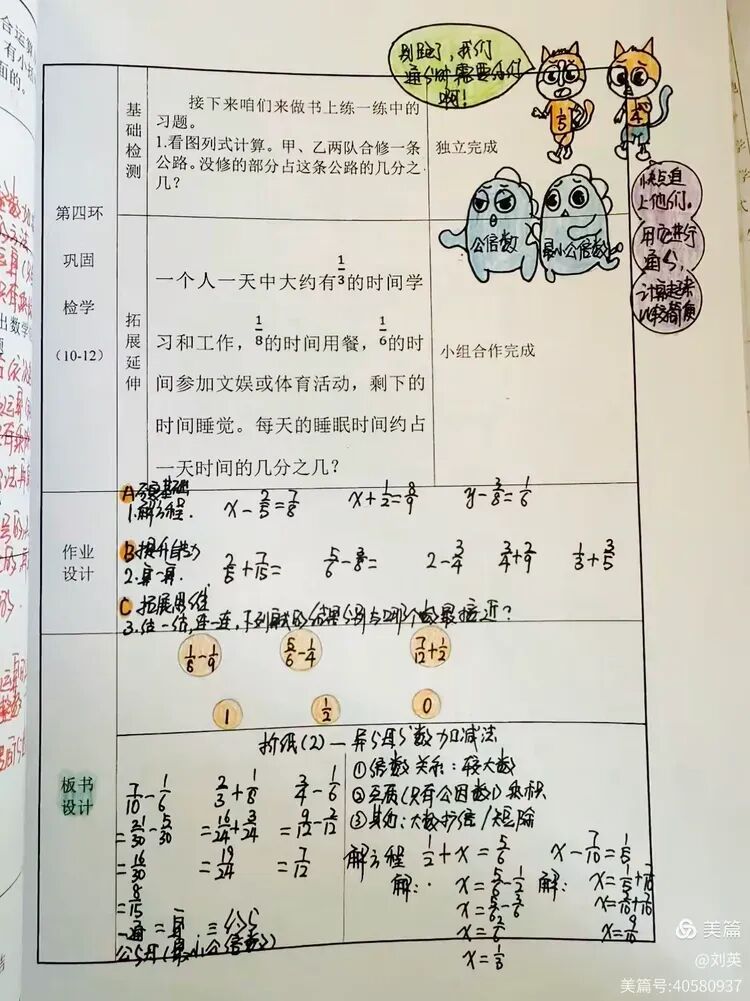 别跑了，我们
通分时需要你们
啊！
1/5
1/4
快点追
上他们。
用它进行
通分，
计算起来
比较简便
公倍数
最小公倍数
合运算
有小括
面的。
第四环
巩固
检学
(10-12)
基础检测
接下来咱们来做书上练一练中的
习题。
1.看图列式计算。甲、乙两队合修一条
公路。没修的部分占这条公路的几分之
几？
独立完成
拓展延伸
一个人一天中大约有1/3的时间学
习和工作，1/8的时间用餐，1/6的时
间参加文娱或体育活动，剩下的
时间睡觉。每天的睡眠时间约占
一天时间的几分之几？
小组合作完成
作业
设计
A 夯实基础
1.解方程. x-2/5=7/8 x+1/2=8/9 y-3/8=1/6
B 提升能力
2.算一算. 2/5+7/15= 5/6-3/8= 2-3/4 3/4+2/9 1/3+3/5
C 拓展思维
3.估一估,连一连,下列算式的结果分别与哪个数最接近?
1/8-1/9 5/6-1/4 7/12+1/2
1 1/2 0
板书
设计
折纸(2)—异分母分数加减法
7/10-1/6 2/3+1/8 3/4-1/6
=21/30-5/30 =16/24+3/24 =9/12-2/12
=16/30 =19/24 =7/12
=8/15
一通 二算 三约分
公分母(最小公倍数)
①倍数关系:较大数
②互质(只有公因数1)乘积
③其他:大数扩倍/短除
解方程 1/2+x=5/6 x-7/10=1/5
解: x=5/6-1/2 解: x=1/5+7/10
x=5/6-3/6 x=2/10+7/10
x=2/6 x=9/10
x=1/3
美篇
@刘英
美篇号:40580937